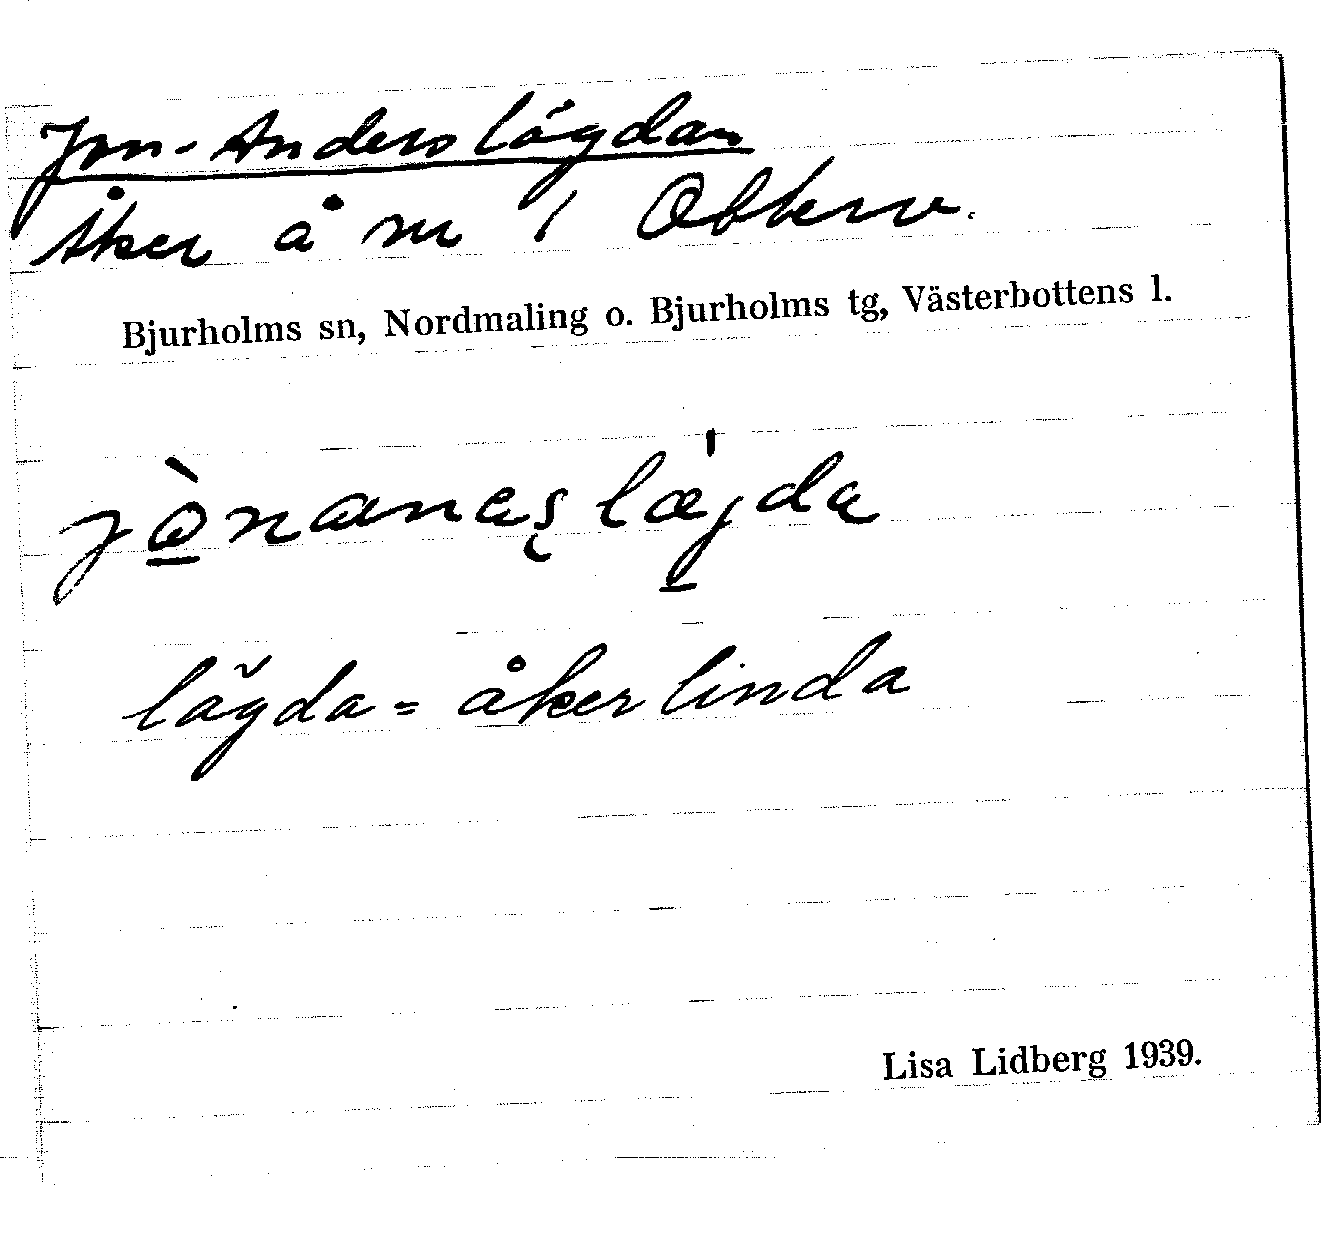 Jon-Anders lägdan
Åker å nr 1
Bjurholms sn, Nordmaling o. Bjurholms tg, Västerbottens l.
lägda = åkerlinda
Lisa Lidberg 1939.